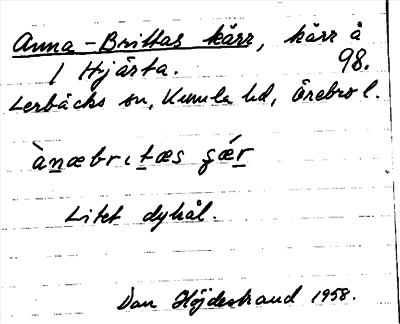 Anna-Brittas kärr, kärr å
1 Hjärta. 98.
Lerbäcks sn, Kumla hd, Örebro l.
ànæbrıtæs çǽr
Litet dyhål.
Dan Höjdestrand 1958.